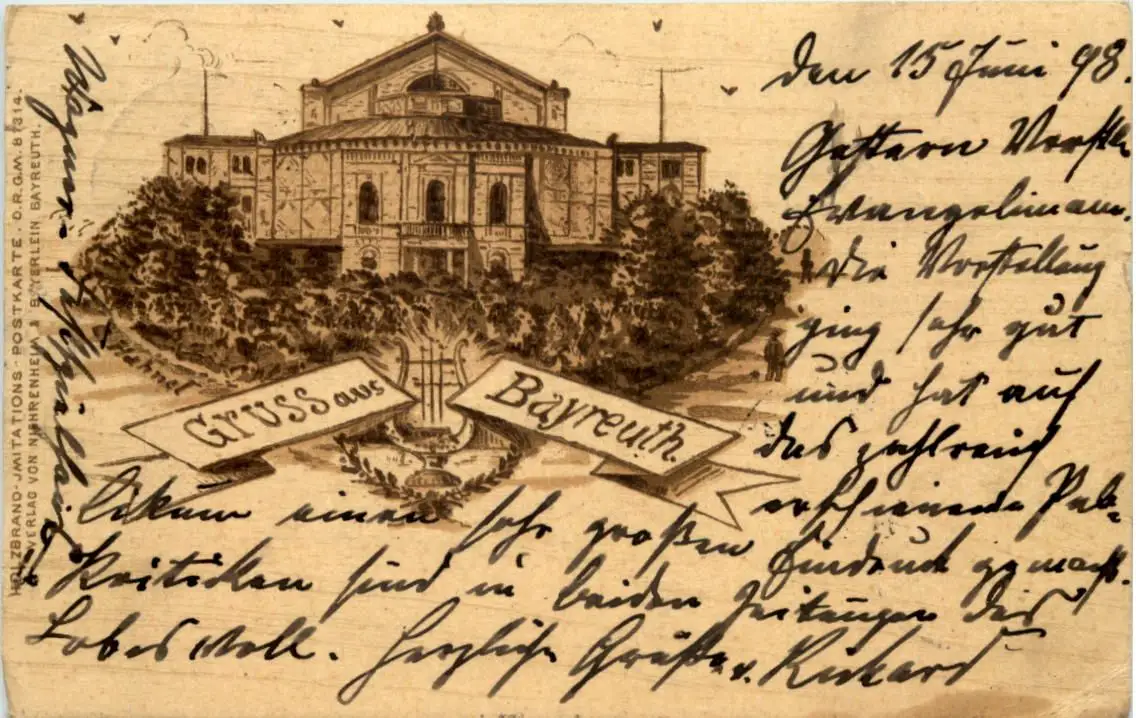 den 15 Juni 98.
Gestern Vorstllg
Evangelimann.
die Vorstellung
ging sehr gut
und hat auf
das zahlreich
erschienene Pub-
likum einen sehr großen Eindruck gemacht.
Kritiken sind in beiden Zeitungen des
Lobes voll. Herzliche Grüße v. Rickard
Wagner-
Gruss aus
Bayreuth.
HOLZBRAND-IMITATIONS-POSTKARTE. D.R.G.M. 87314.
VERLAG VON NÄHRENHEIM & BAYERLEIN BAYREUTH.